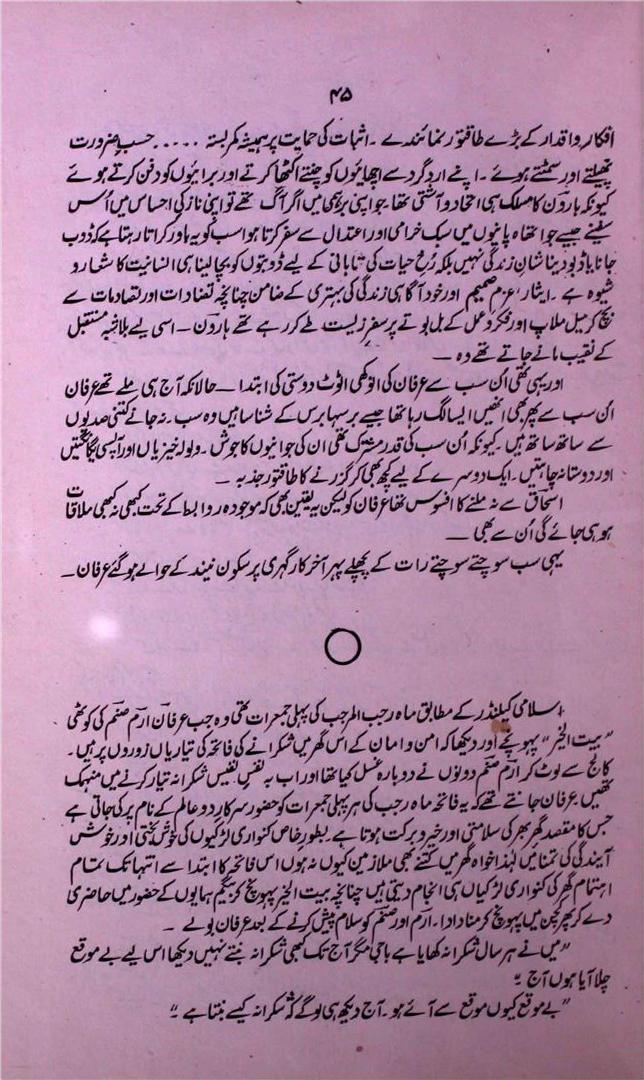 ۴۵
افکار و اقدار کے بڑے طاقتور نمائندے ۔ اثبات کی حمایت پر ہمیشہ کمربستہ ..... حسب ضرورت
پھیلتے اور سمٹتے ہوئے ۔ اپنے اردگرد سے اچھائیوں کو چنتے اکٹھا کرتے اور برائیوں کو دفن کرتے ہوئے
کیونکہ ہارون کا مسلک ہی اتحاد و آشتی تھا ۔ جو اپنی برہمی میں اگر آگ تھے تو اپنی نازکی احساس میں اُس
سفینے جیسے جو اتھاہ پانیوں میں سبک خرامی اور اعتدال سے سفر کرتا ہوا سب کو یہ باور کراتا رہتا ہے کہ ڈوب
جانا یا ڈبو دینا شانِ زندگی نہیں بلکہ رُخِ حیات کی تابانی کے لیے ڈوبتوں کو بچا لینا ہی انسانیت کا شعار و
شیوہ ہے ۔ ایثار، عزمِ صمیم اور خود آگاہی زندگی کی بہتری کے ضامن چنانچہ تضادات اور تصادمات سے
بچ کر میل ملاپ اور فکر و عمل کے بل بوتے پر سفرِ زیست طے کر رہے تھے ہارون ۔ اسی لیے بلاشبہ مستقبل
کے نقیب مانے جاتے تھے وہ ــ
اور یہی تھی اُن سب سے عرفان کی انوکھی اٹوٹ دوستی کی ابتدا ــ حالانکہ آج ہی ملے تھے عرفان
ان سب سے پھر بھی انھیں ایسا لگ رہا تھا جیسے برسہا برس کے شناسا ہیں وہ سب ۔ نہ جانے کتنی صدیوں
سے ساتھ ساتھ ہیں ۔ کیونکہ اُن سب کی قدر مشترک تھی ان کی جوانیوں کا جوش ۔ ولولہ خیزیاں اور آپسی یگانگتیں
اور دوستانہ چاہتیں ۔ ایک دوسرے کے لیے کچھ بھی کر گزرنے کا طاقتور جذبہ ــ
اسحاق سے نہ ملنے کا افسوس تھا عرفان کو لیکن یہ یقین بھی کہ موجودہ روابط کے تحت کبھی نہ کبھی ملاقات
ہو ہی جائے گی اُن سے بھی ــ
یہی سب سوچتے سوچتے رات کے پچھلے پہر آخر کار گہری پرسکون نیند کے حوالے ہو گئے عرفان ــ
اسلامی کیلنڈر کے مطابق ماہ رجب المرجب کی پہلی جمعرات تھی وہ جب عرفان ارم صنم کی کوٹھی
”بیت الخیر“ پہونچے اور دیکھا کہ امن و امان کے اس گھر میں شکرانے کی فاتحہ کی تیاریاں زوروں پر ہیں ۔
کالج سے لوٹ کر ارم صنم دونوں نے دوبارہ غسل کیا تھا اور اب بہ نفس نفیس شکرانہ تیار کرنے میں منہمک
تھیں ۔ عرفان جانتے تھے کہ یہ فاتحہ ماہ رجب کی ہر پہلی جمعرات کو حضور سرکارِ دو عالم کے نام پر کی جاتی ہے
جس کا مقصد گھر بھر کی سلامتی اور خیر و برکت ہوتا ہے ۔ بطورِ خاص کنواری لڑکیوں کی خوش بختی اور خوش
آیندگی کی تمنا میں لہٰذا خواہ گھر میں کتنے بھی ملازمین کیوں نہ ہوں اس فاتحہ کا ابتدا سے انتہا تک تمام
اہتمام گھر کی کنواری لڑکیاں ہی انجام دیتی ہیں چنانچہ بیت الخیر پہونچ کر بیگم ہمایوں کے حضور میں حاضری
دے کر پھر کچن میں پہونچ کر منا دادا ۔ ارم اور صنم کو سلام پیش کرنے کے بعد عرفان بولے ۔
”میں نے ہر سال شکرانہ کھایا ہے باجی مگر آج تک کبھی شکرانہ بنتے نہیں دیکھا اس لیے بے موقع
چلا آیا ہوں آج ۔“
”بے موقع کیوں موقع سے آئے ہو ۔ آج دیکھ ہی لو گے کہ شکرانہ کیسے بنتا ہے ۔“